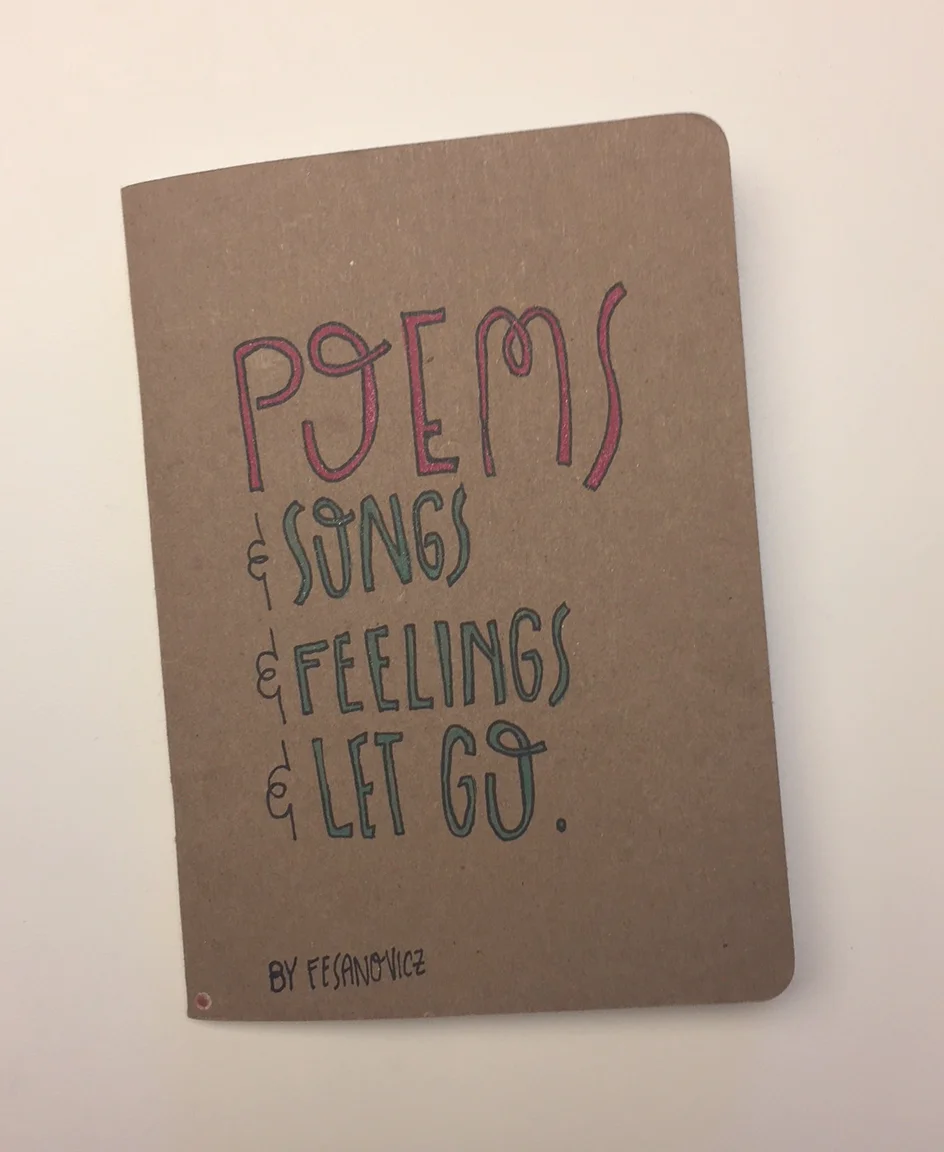 POEMS
& SONGS
& FEELINGS
& LET GO.
BY FESANOVICZ